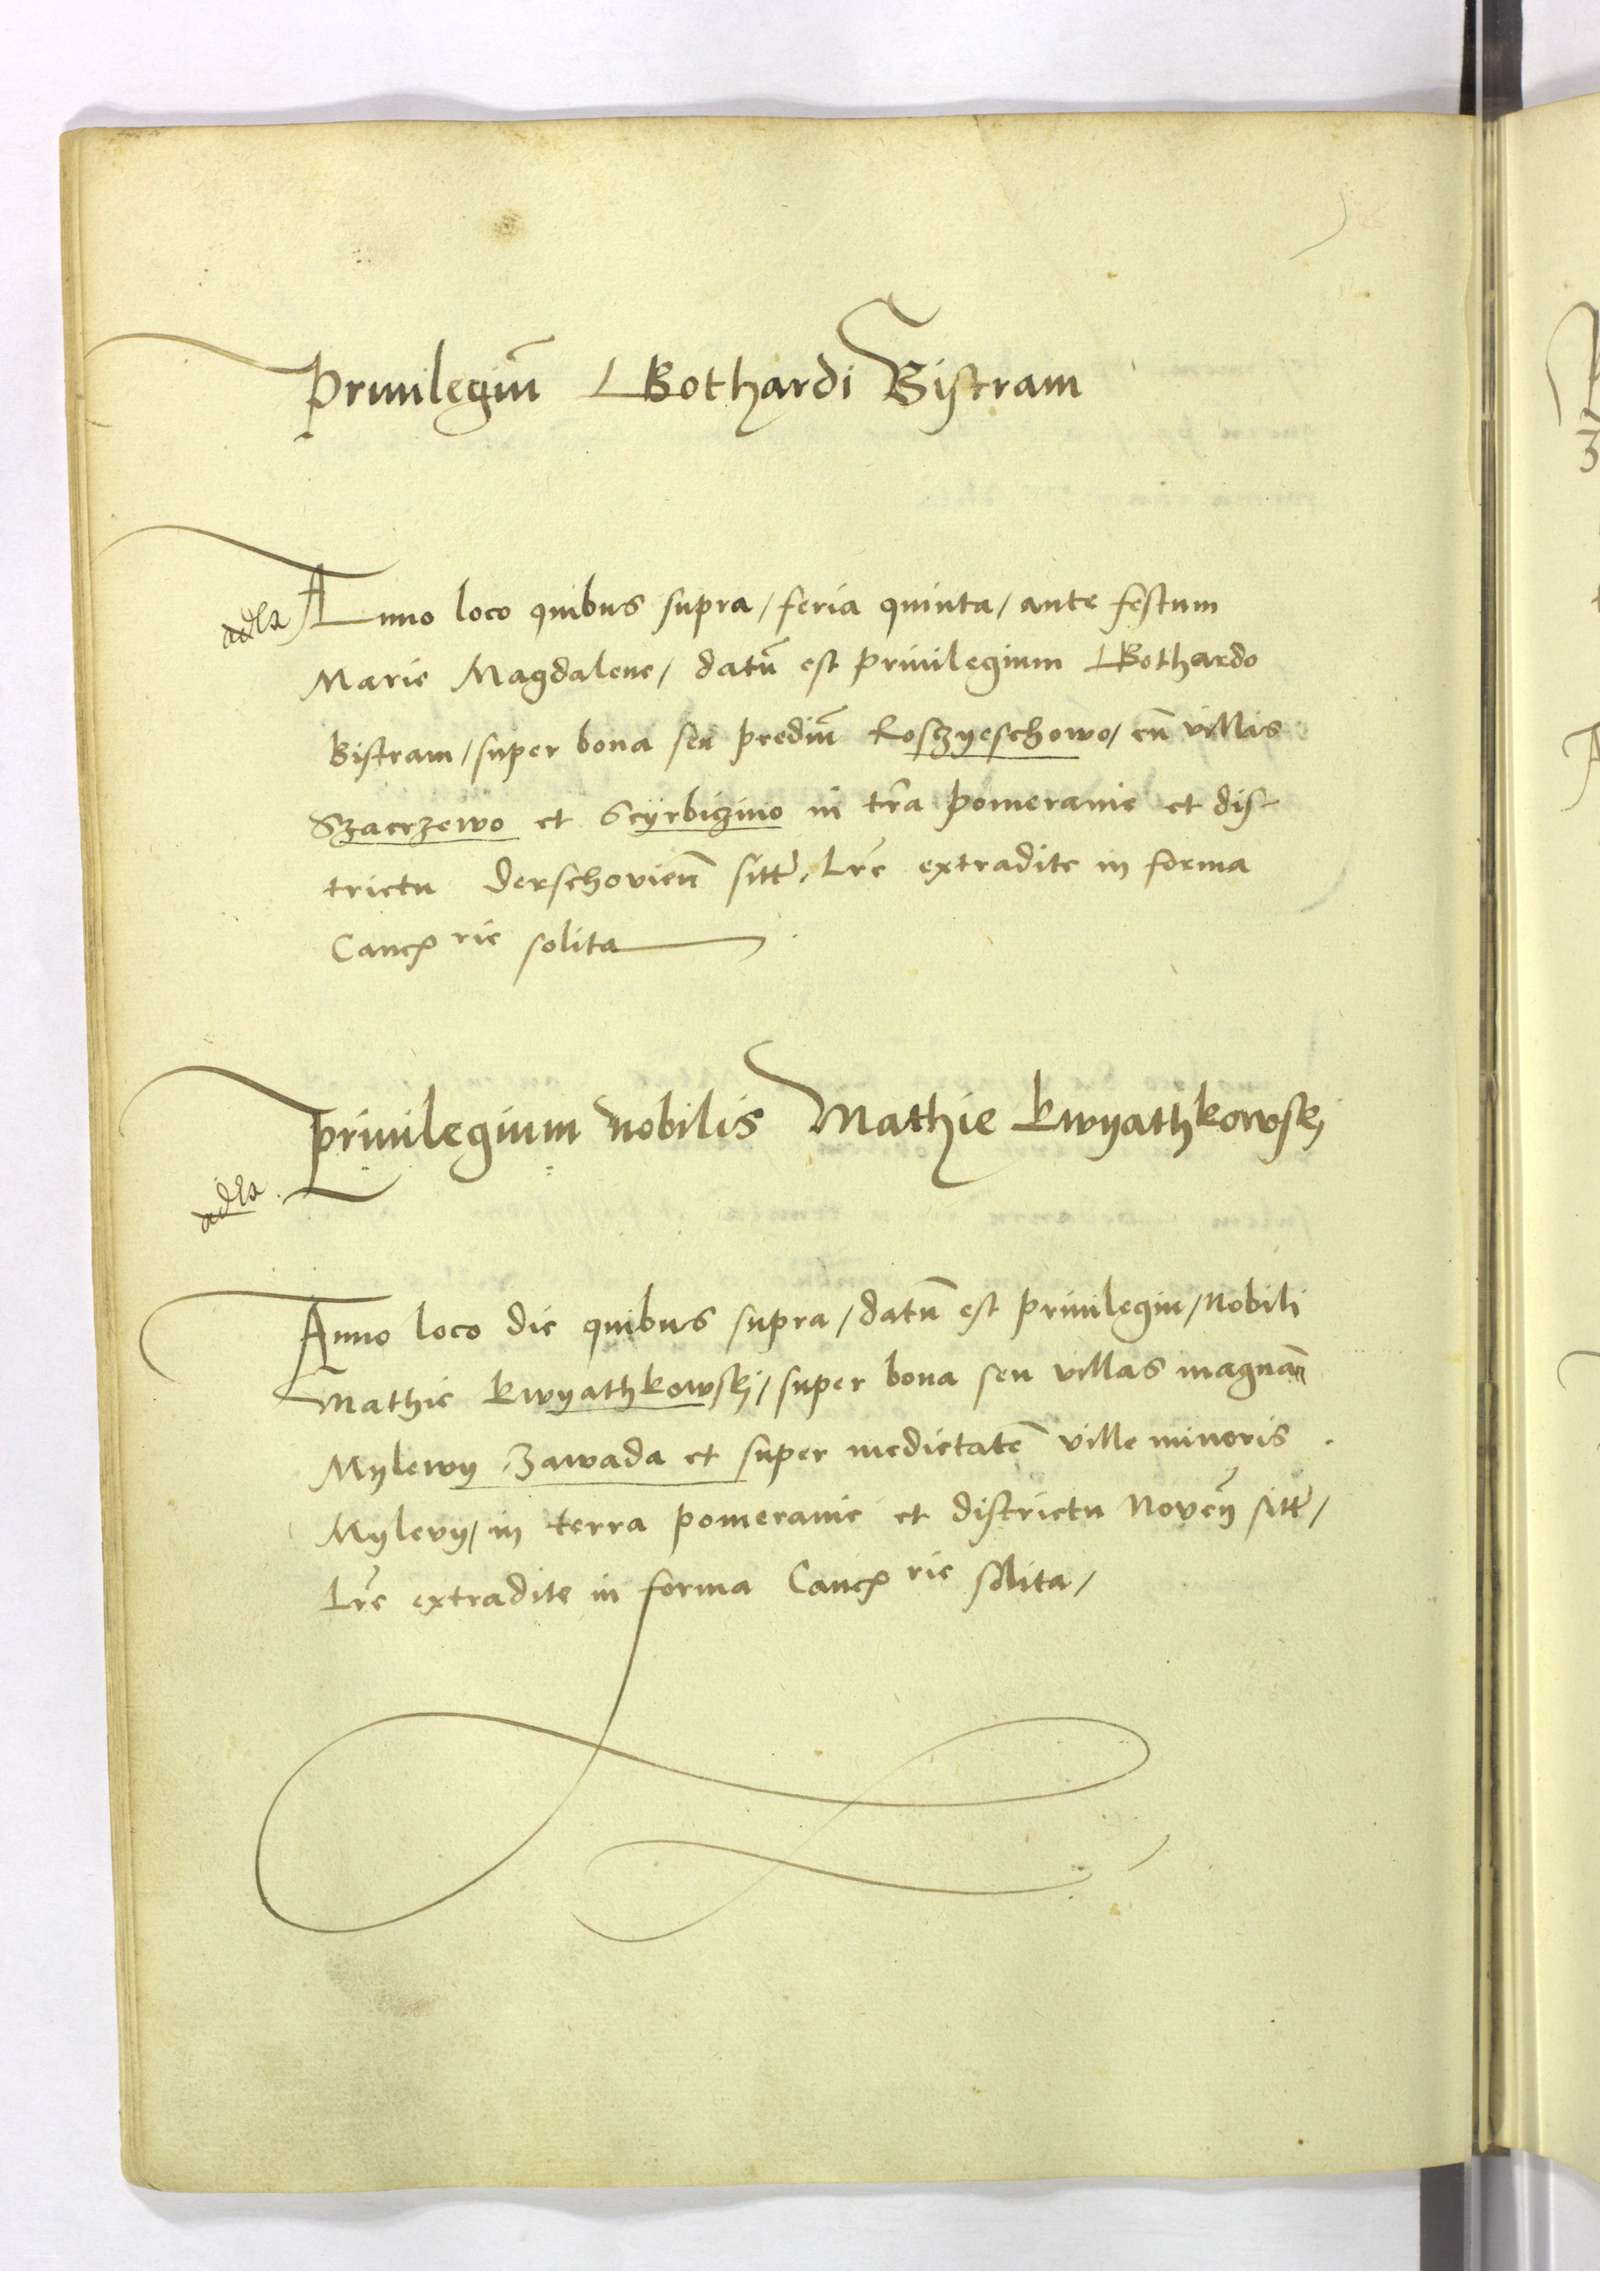 Privilegiū Gothardi Bistram
Anno loco quibus supra / feria quinta / ante festum
Marie Magdalene / datū est privilegium Gothardo
Bistram / super bona seu prediū Rosczyeschowo / cū villis
Szaerzewo et Scyrbizino in tr̄a pomeranie et dis-
trictu Derschovien̄ sitt̄ / Lr̄e extradite in forma
Canc rie solita
privilegium nobilis Mathie Kwyathkowskj
Anno loco die quibus supra / datū est privilegiu / Nobili
Mathie Kwyathkowskj / super bona seu villas magnam
Mylewy Zawada et super medietatē ville minoris
Mylevy / in terra pomeranie et districtu Noven̄ sitt̄ /
Lr̄e extradite in forma Canc rie solita /